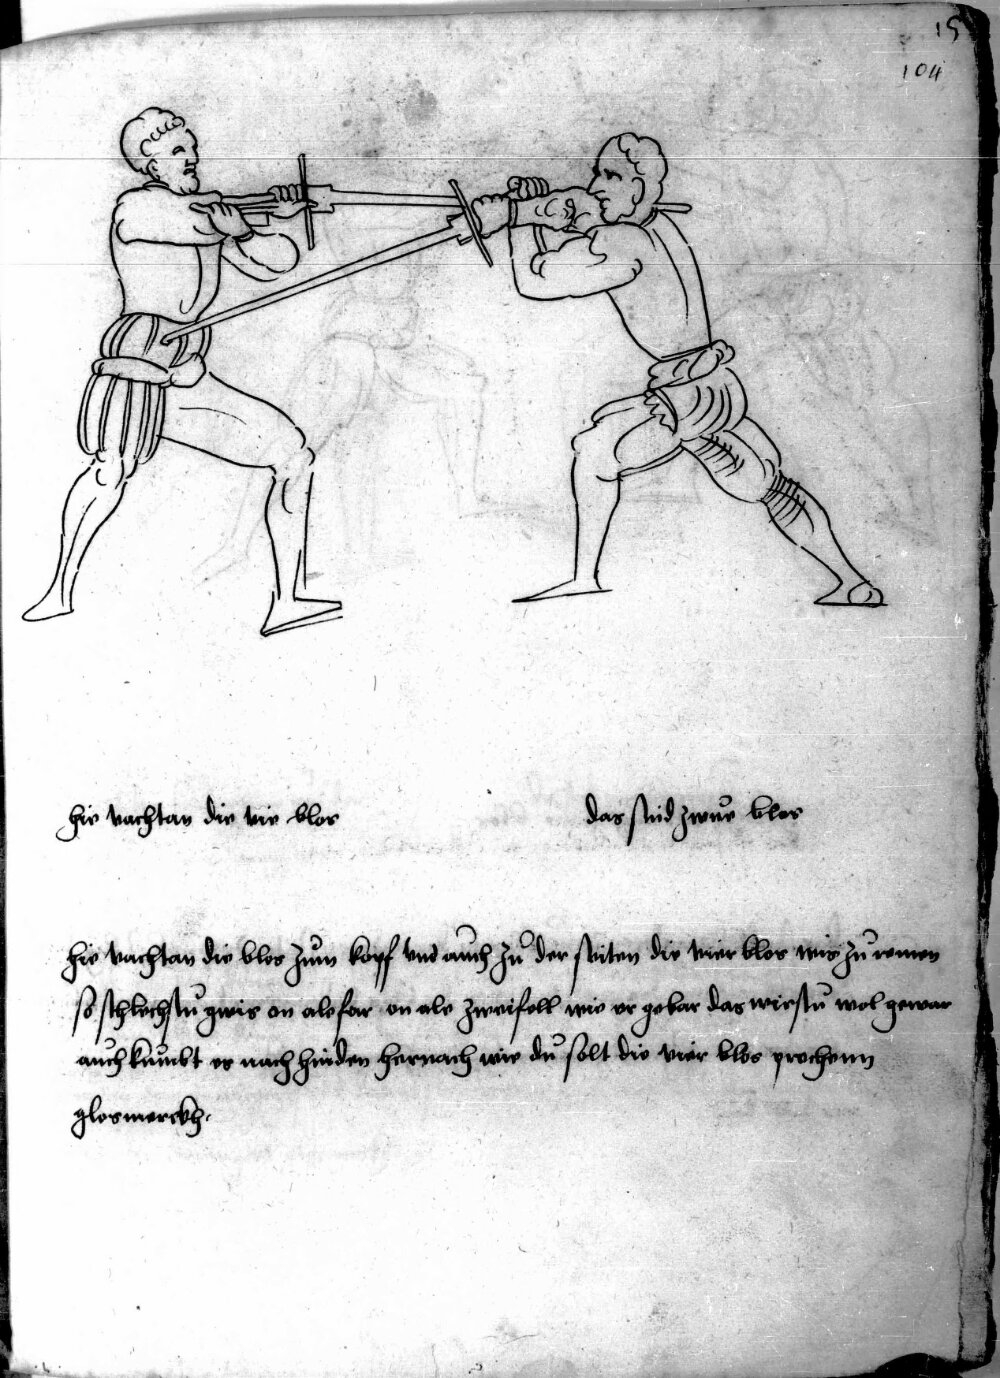 15
104
hie vachtan die vir blos
das sind zwue blos
hie vachtan die blos zum kopf vnd auch zu der seiten die vier blos wis zu remen
so schlechstu gwis on alefar on ale zweifell wie er gebar das wirstu wol gewar
auch kumbt es nach hinden hernach wie du solt die vier blos prechenn
glos merckh.